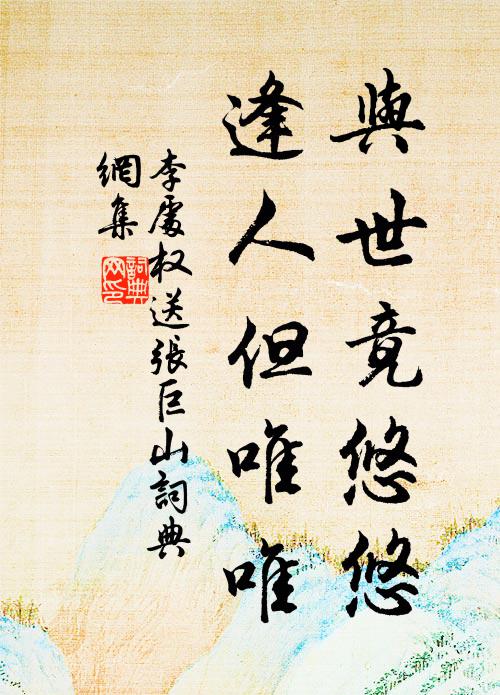 與世竟悠悠
逢人但唯唯
李處权送張巨山詞典
網集
詞典網印